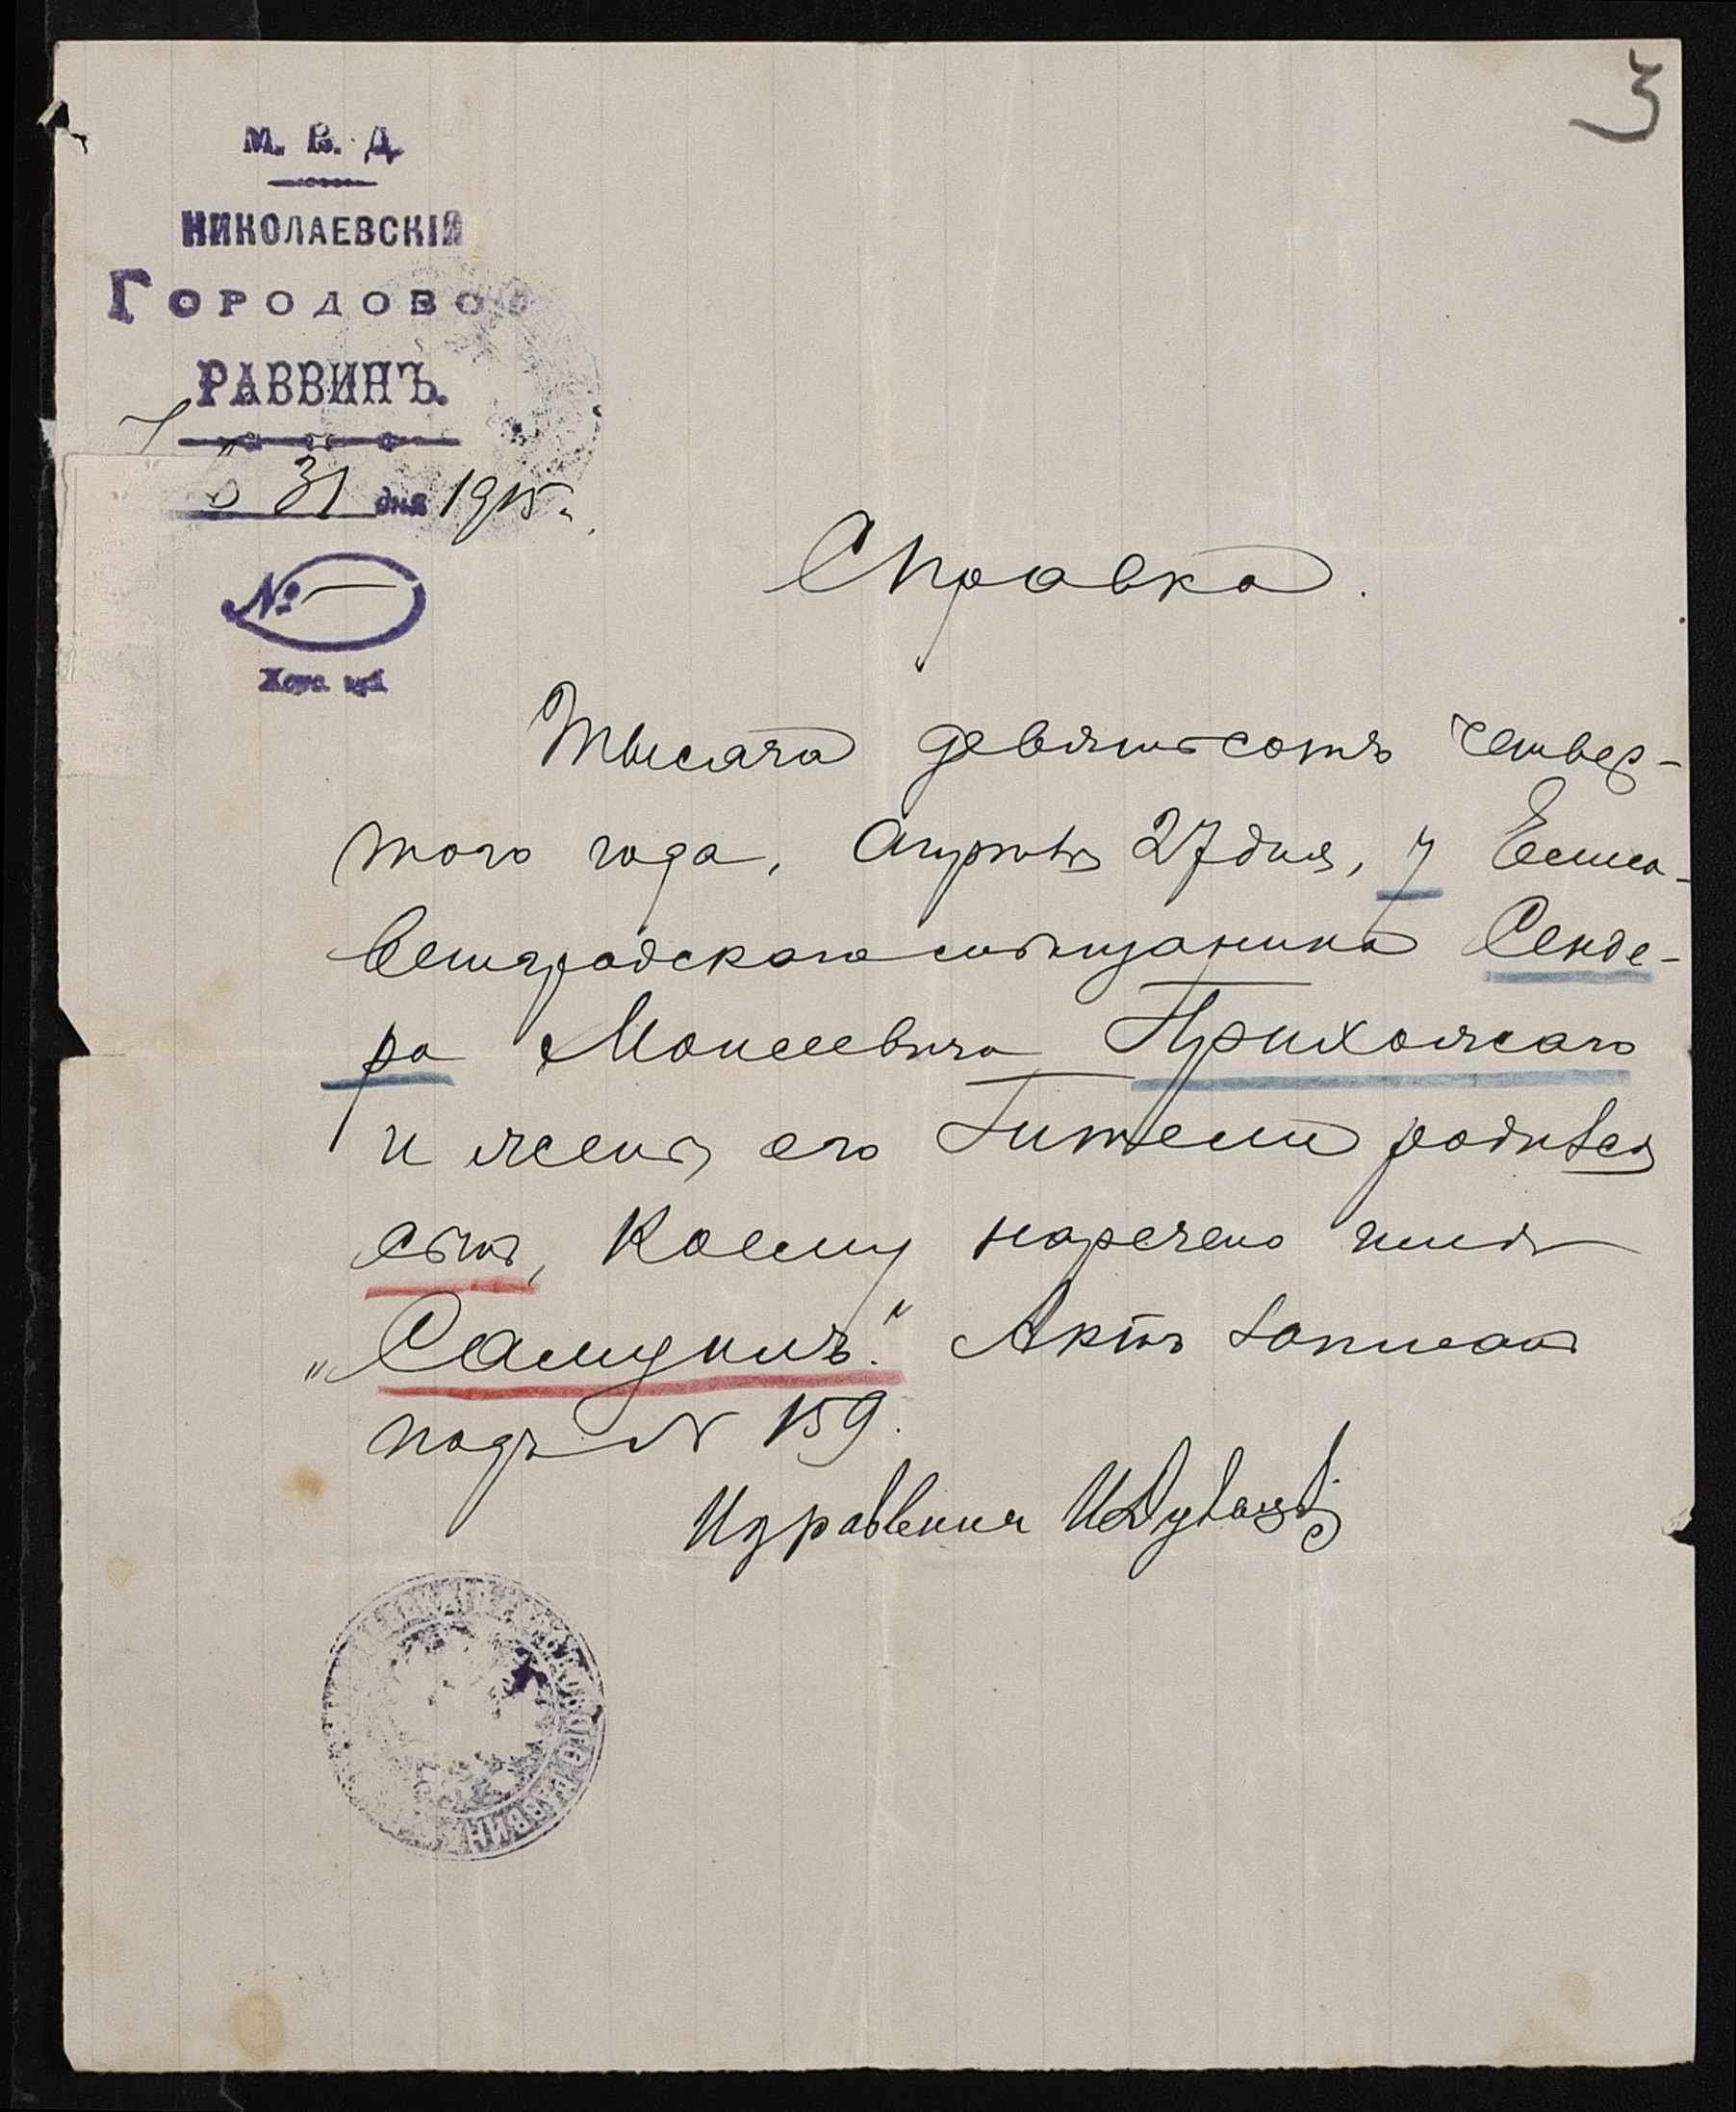 3
М. В. Д
НИКОЛАЕВСКІЙ
ГОРОДОВОЙ
РАВВИНЪ.
31 дня 1915 г.
№
Херс. губ.
Справка.
Тысяча девятьсотъ четвер-
того года, Апрѣля 27 дня, у Елиса-
ветградскаго мѣщанина Сенде-
ра Моисеевича Прихожаго
и жены его Гители родился
сынъ, коему наречено имя
„Самуилъ." Актъ записанъ
подъ № 159.
И. Дувэ
РАВВИН